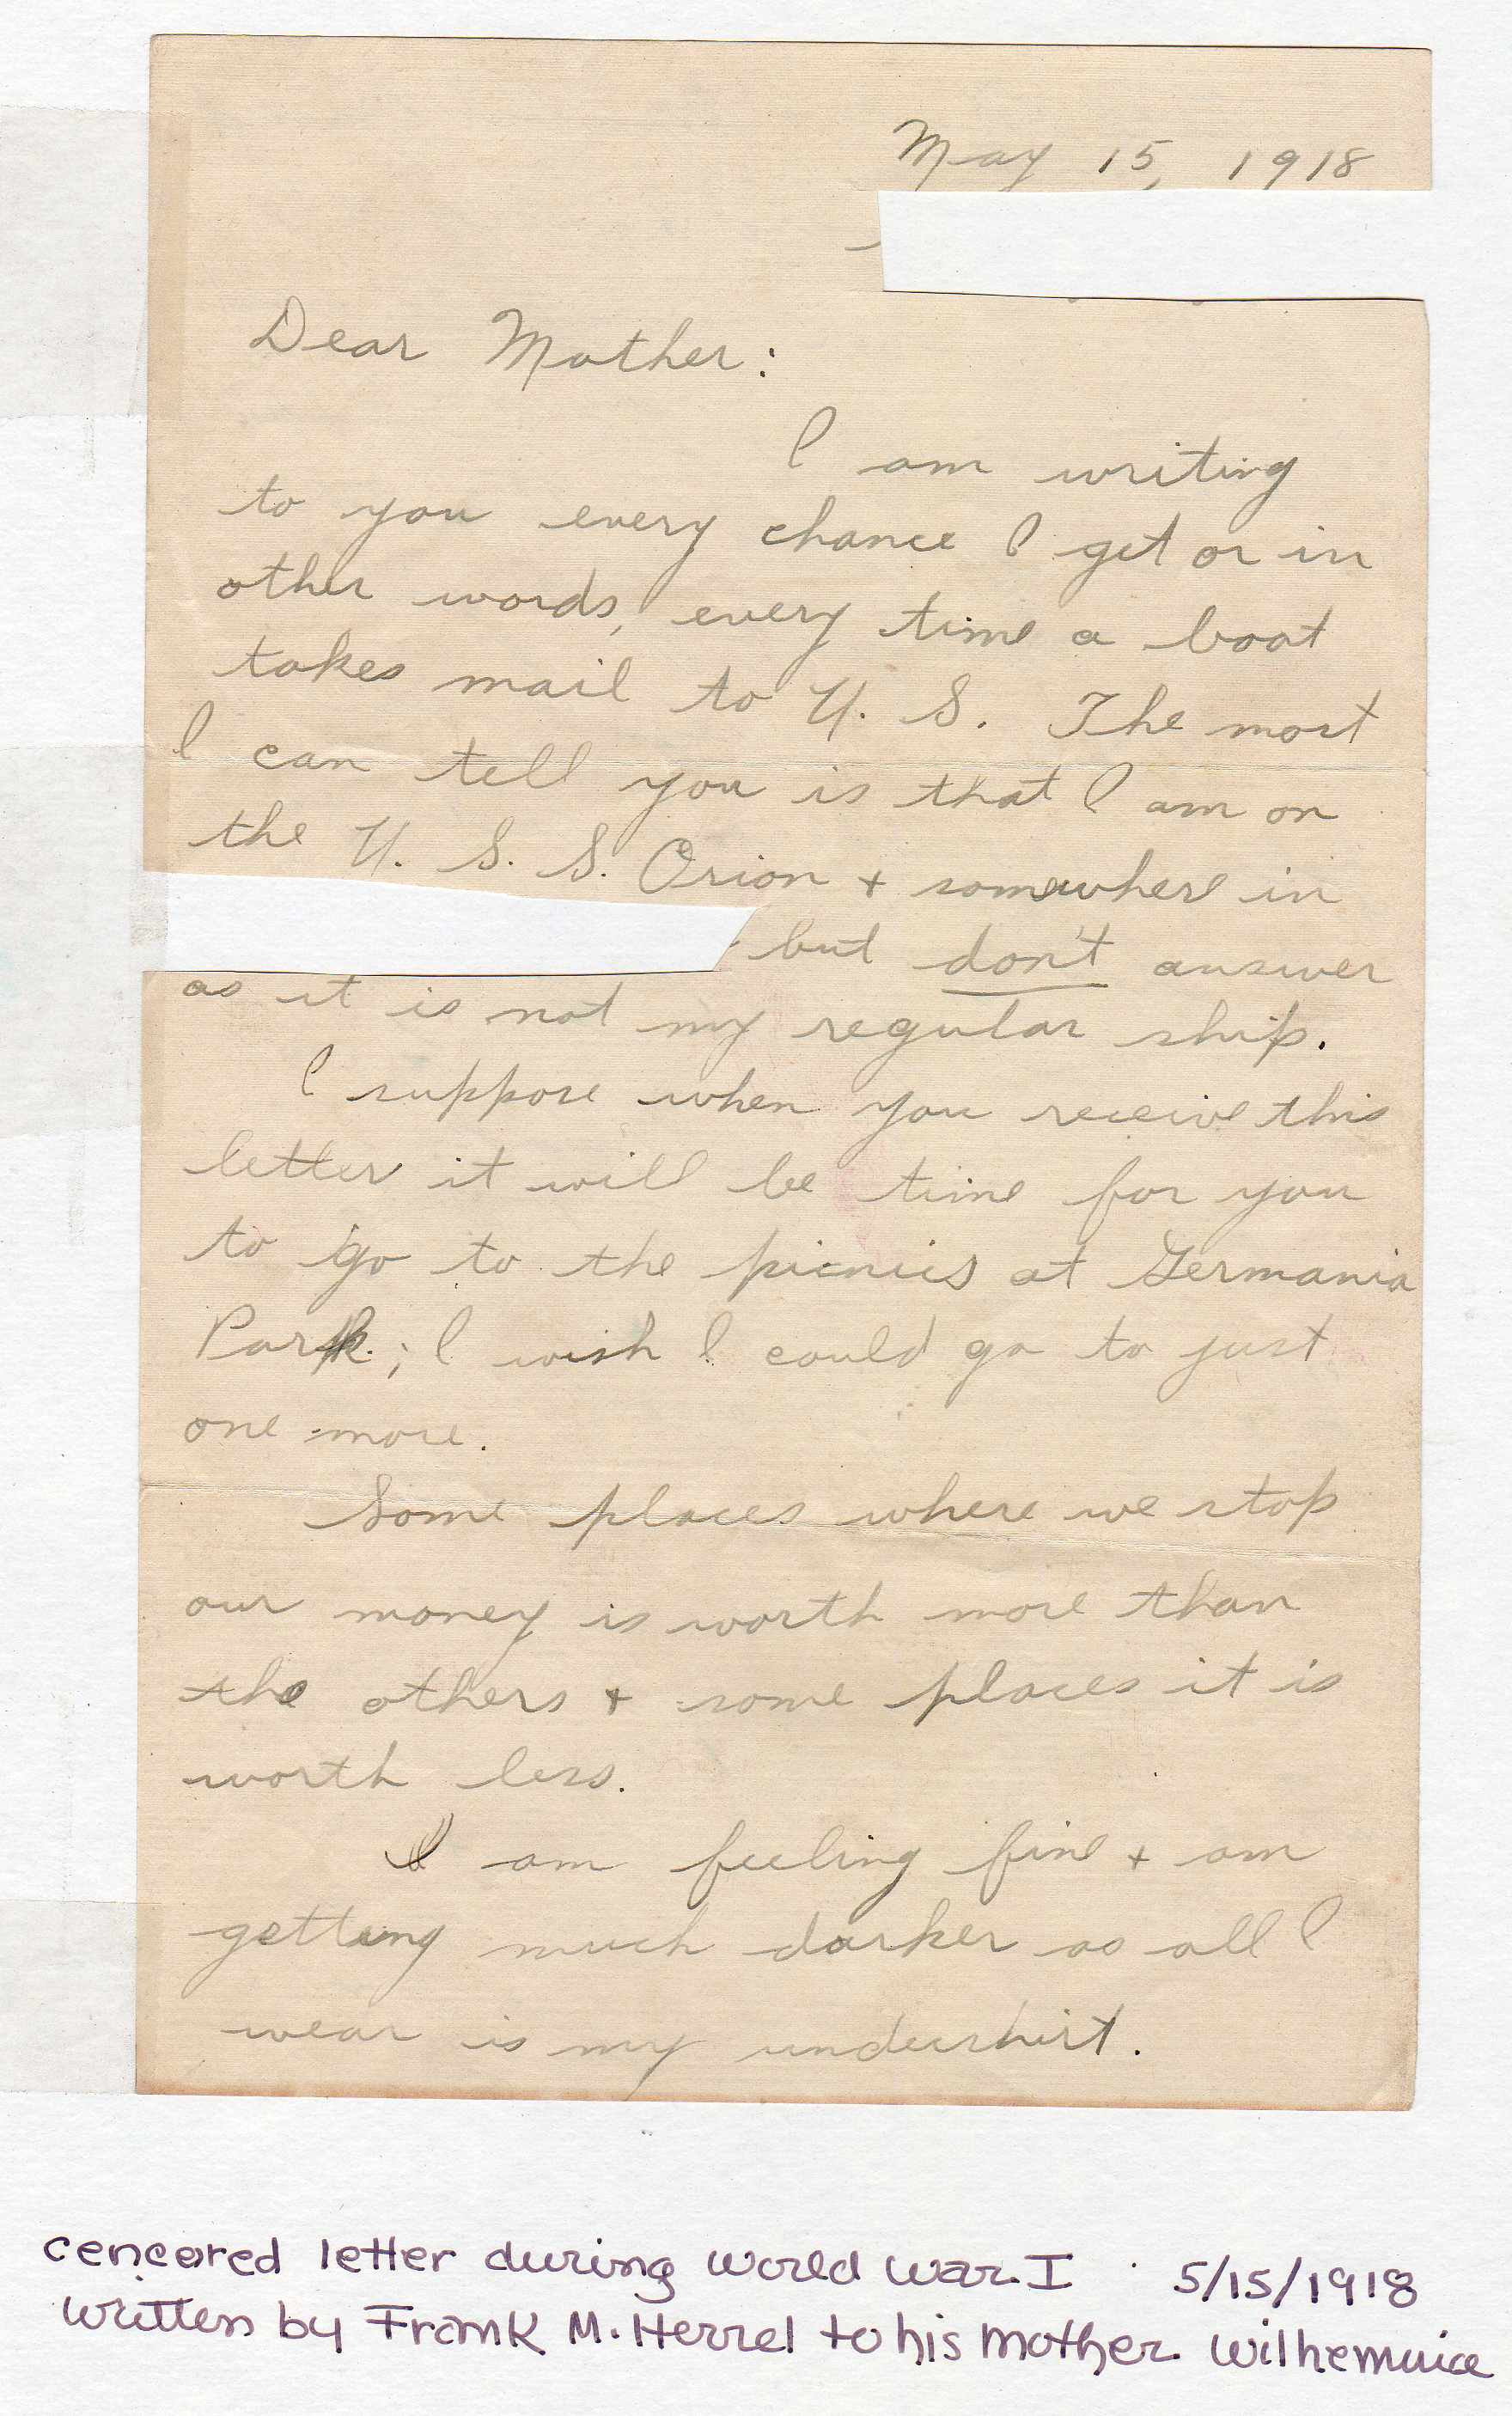 May 15, 1918
Dear Mother:
I am writing
to you every chance I get or in
other words, every time a boat
takes mail to U. S. The most
I can tell you is that I am on
the U. S. S. Orion + somewhere in
but don't answer
as it is not my regular ship.
I suppose when you receive this
letter it will be time for you
to go to the picnics at Germania
Park; I wish I could go to just
one more.
Some places where we stop
our money is worth more than
the others + some places it is
worth less.
I am feeling fine + am
getting much darker as all I
wear is my undershirt.
cencored letter during World War I 5/15/1918
written by Frank M. Herrel to his mother